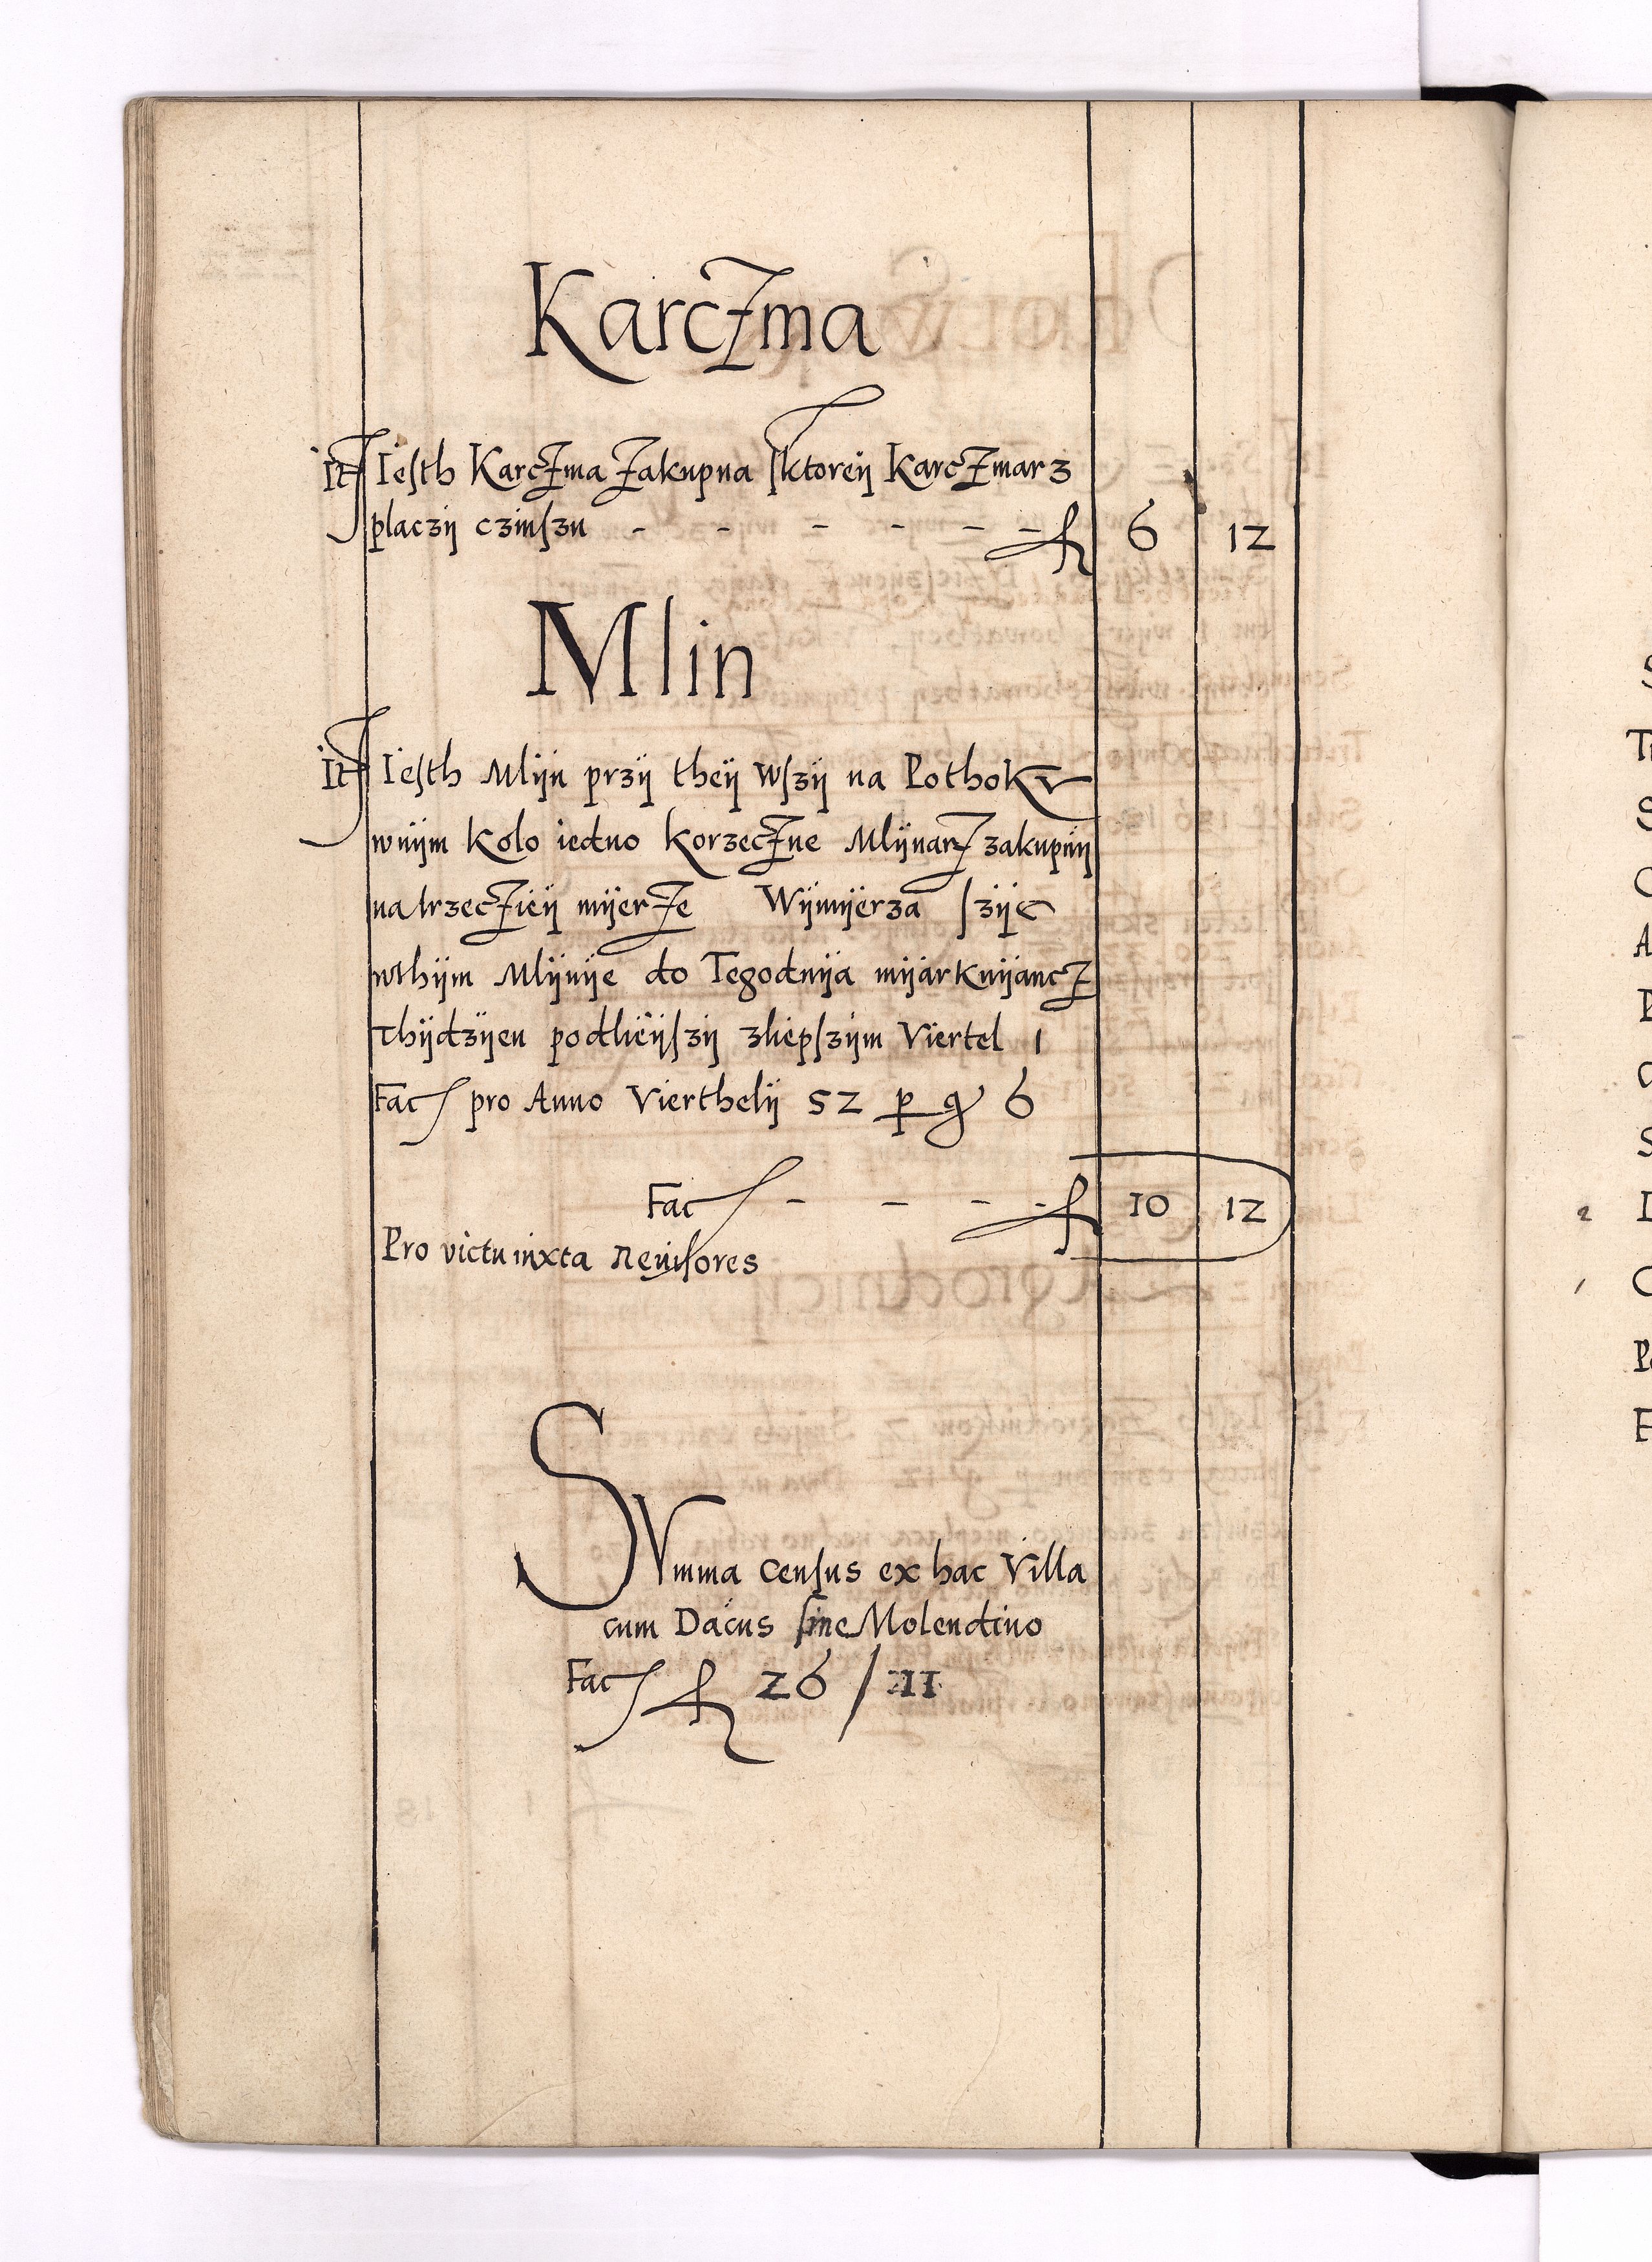 Karczma
It Iesth Karczma zakupna sktoreÿ Karczmarz
placzÿ czinszu - - - - - - fl 6 12
Mlin
It Iesth Mlÿn przÿ theÿ wszÿ na Pothoku
wnÿm Kolo iedno Korzeczne Mlÿnarz zakupnÿ
natrzeczieÿ mÿerze Wÿmÿerza szÿe
wthÿm Mlÿnÿe do Tegodnÿa mÿarkuÿancz
thÿdzÿen podlieÿszÿ zliepszÿm Viertel 1
Fac pro Anno Vierthelÿ 52 p g 6
Fac - - - - fl 10 12
Pro victu iuxta Revisores
SVmma census ex hac Villa
cum Dacÿs sine Molendino
Fac fl 26 / 11